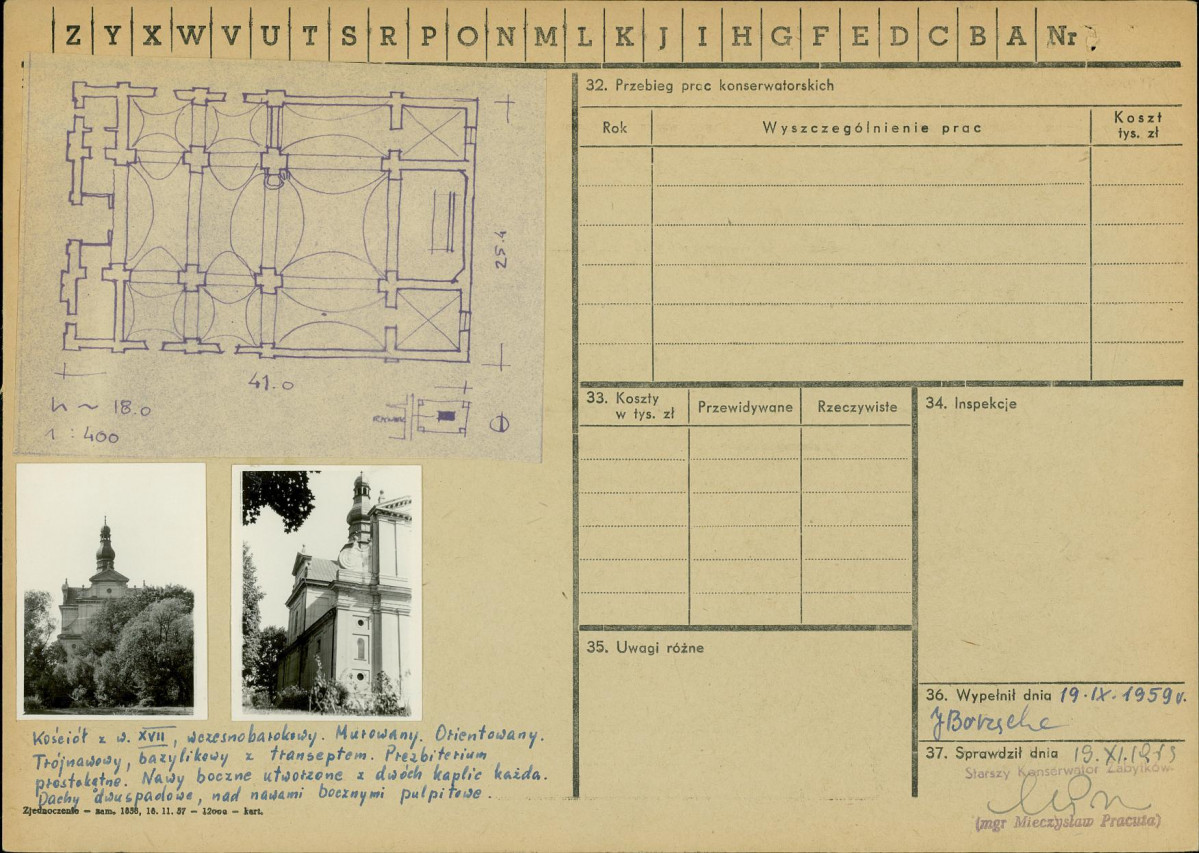 Z Y X W V U T S R P O N M L K J I H G F E D C B A Nr
25.4
41.0
h ~ 18.0
1 : 400
Kościół z w. XVII, wczesnobarokowy. Murowany. Orientowany.
Trójnawowy, bazylikowy z transeptem. Prezbiterium
prostokątne. Nawy boczne utworzone z dwóch kaplic każda.
Dachy dwuspadowe, nad nawami bocznymi pulpitowe.
Zjednoczenie — zam. 1858, 16. 11. 57 — 12000 — kart.
32. Przebieg prac konserwatorskich
Rok
Wyszczególnienie prac
Koszt
tys. zł
33. Koszty
w tys. zł
Przewidywane
Rzeczywiste
34. Inspekcje
35. Uwagi różne
36. Wypełnił dnia 19.IX.1959 r.
37. Sprawdził dnia 19.XI.
Starszy Konserwator Zabytków
(mgr Mieczysław Pracuta)